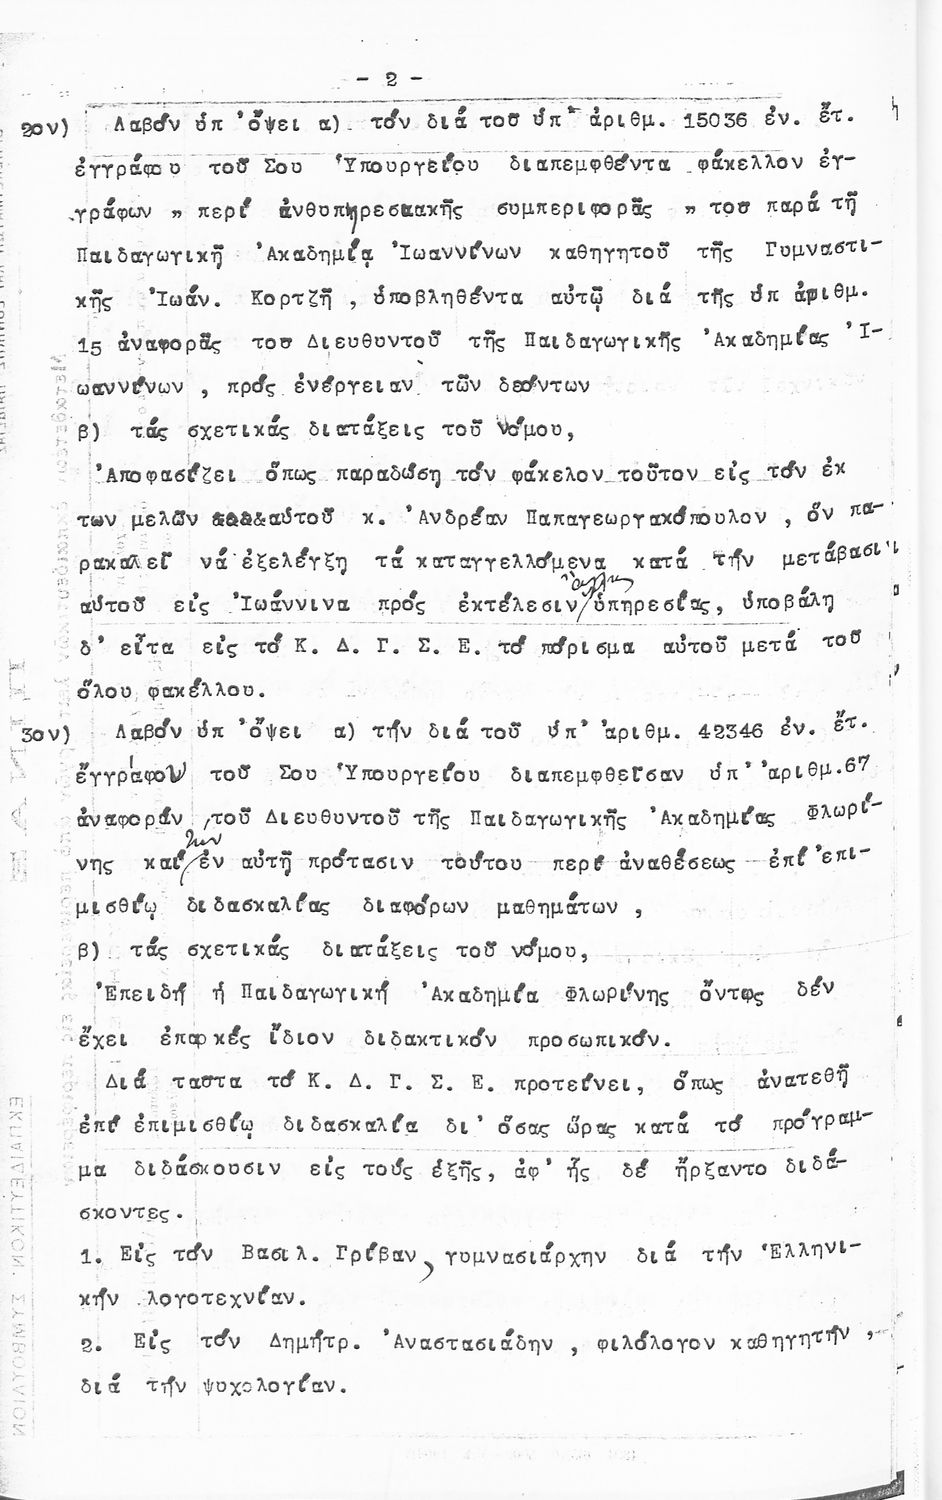 - 2 -
2ον) Λαβόν ὑπ 'ὄψει α) τόν διά τοῦ ὑπ' ἀριθμ. 15036 ἐν. ἔτ.
ἐγγράφου τοῦ Σου Ὑπουργείου διαπεμφθέντα φάκελλον ἐγ-
γράφων " περί ἀνθυπηρεσιακῆς συμπεριφορᾶς " του παρά τῇ
Παιδαγωγικῇ Ἀκαδημίᾳ Ἰωαννίνων καθηγητοῦ τῆς Γυμναστι-
κῆς Ἰωάν. Κορτζῆ , ὑποβληθέντα αὐτῷ διά τῆς ὑπ ἀριθμ.
15 ἀναφορᾶς του Διευθυντοῦ τῆς Παιδαγωγικῆς Ἀκαδημίας Ἰ-
ωαννίνων , πρός ἐνέργειαν τῶν δεόντων
β) τάς σχετικάς διατάξεις τοῦ νόμου,
Ἀποφασίζει ὅπως παραδώση τόν φάκελον τοῦτον εἰς τόν ἐκ
των μελῶν αὐτοῦ κ. Ἀνδρέαν Παπαγεωργακόπουλον , ὅν πα-
ρακαλεῖ νά ἐξελέγξῃ τά καταγγελλόμενα κατά τήν μετάβασιν
αὐτοῦ εἰς Ἰωάννινα πρός ἐκτέλεσιν ἄλλης ὑπηρεσίας, ὑποβάλη
δ' εἶτα εἰς τό Κ. Δ. Γ. Σ. Ε. τό πόρισμα αὐτοῦ μετά τοῦ
ὅλου φακέλλου.
3ον) Λαβόν ὑπ 'ὄψει α) τήν διά τοῦ ὑπ' ἀριθμ. 42346 ἐν. ἔτ.
ἔγγράφου τοῦ Σου Ὑπουργείου διαπεμφθεῖσαν ὑπ' ἀριθμ.67
ἀναφοράν τοῦ Διευθυντοῦ τῆς Παιδαγωγικῆς Ἀκαδημίας Φλωρί-
νης καί τήν ἐν αὐτῇ πρότασιν τούτου περί ἀναθέσεως ἐπί ἐπι-
μισθίῳ διδασκαλίας διαφόρων μαθημάτων ,
β) τάς σχετικάς διατάξεις τοῦ νόμου,
Ἐπειδή ἡ Παιδαγωγική Ἀκαδημία Φλωρίνης ὄντως δέν
ἔχει ἐπαρκές ἴδιον διδακτικόν προσωπικόν.
Διά ταῦτα τό Κ. Δ. Γ. Σ. Ε. προτείνει, ὅπως ἀνατεθῆ
ἐπί ἐπιμισθίῳ διδασκαλία δι' ὅσας ὥρας κατά τό πρόγραμ-
μα διδάσκουσιν εἰς τούς ἑξῆς, ἀφ' ἧς δέ ἤρξαντο διδά-
σκοντες.
1. Εἰς τόν Βασιλ. Γρίβαν, γυμνασιάρχην διά τήν Ἑλληνι-
κήν λογοτεχνίαν.
2. Εἰς τόν Δημήτρ. Ἀναστασιάδην , φιλόλογον καθηγητήν ,
διά τήν ψυχολογίαν.